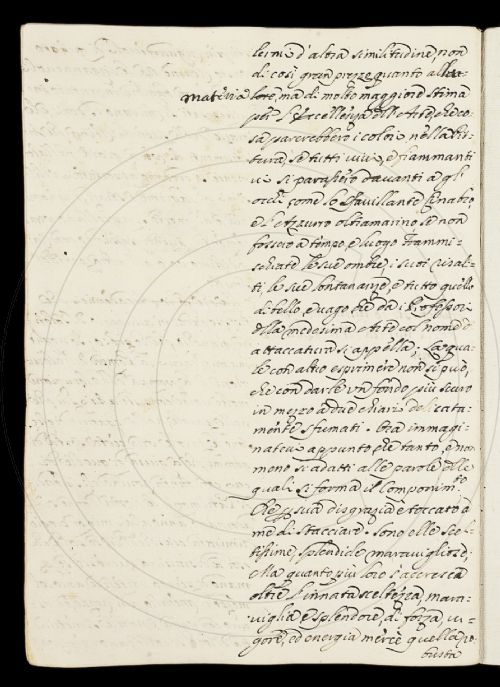 lermi d'altra similitudine, non
di così gran prezzo quanto al
Materia
lore, ma di molto maggiore stima
per l'Eccellenza dell'Arte, che co-
sa parerebbero i colori nella Pit-
tura, se tutti vivi, e fiammanti
vi si parassero davanti a gl'
occhi come lo sfavillante Cinabro,
e l'Azzurro oltramarino, se non
fossero a tempo, e luogo trammi-
schiate le sue ombre, i suoi risal-
ti, le sue lontananze, e tutto quello
di bello, e vago che da i Professori
della medesima Arte col nome d'
attaccatura si appella; La qua-
le con altro esprimere non si può,
che con darle un fondo più scuro
in mezzo a due chiari delicata-
mente sfumati. Ora immagi-
natevi appunto che tanto, e non
meno si adatti alle parole delle
quali si forma il Componim.to
che p sua disgrazia è toccato a
me di stacciare. Sono elle Scel-
tissime, splendide, maravigliose;
Ma quanto più loro s'accresce
oltre l'innata sceltezza, mara-
viglia e splendore, di forza, vi-
gore, ed energia mercè quella
busta